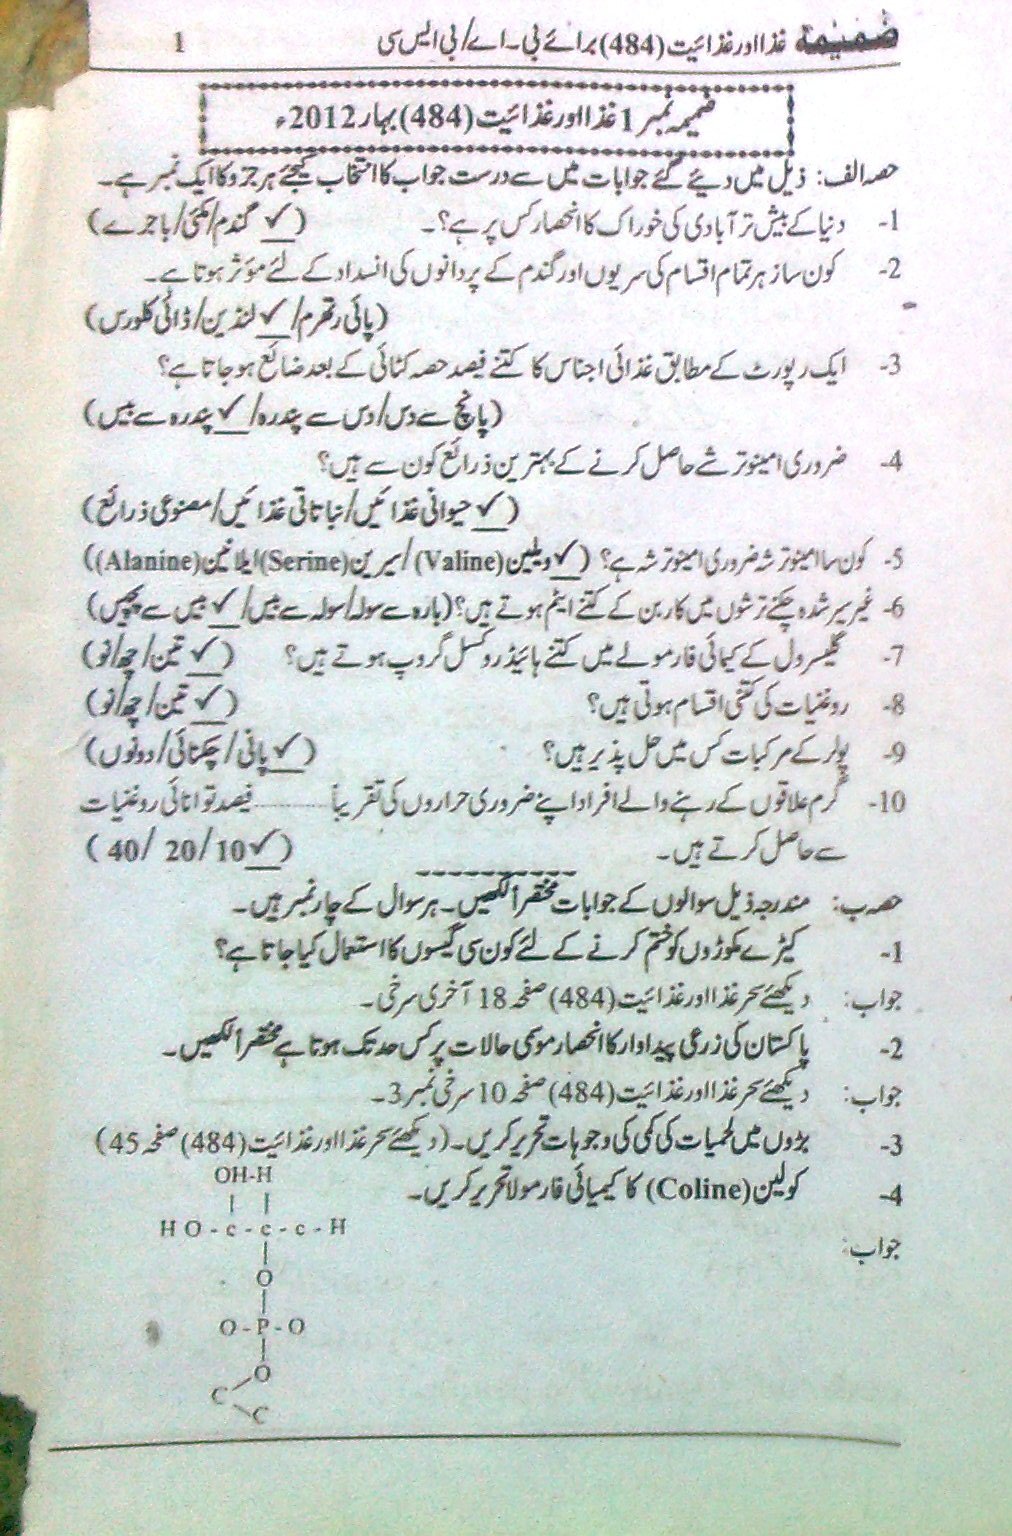 ضمیمہ غذا اور غذائیت (484) برائے بی۔اے/بی ایس سی 1
ضمیمہ نمبر 1 غذا اور غذائیت (484) بہار 2012ء
حصہ الف: ذیل میں دیئے گئے جوابات میں سے درست جواب کا انتخاب کیجئے ہر جزو کا ایک نمبر ہے۔
1- دنیا کے بیش تر آبادی کی خوراک کا انحصار کس پر ہے؟۔ (✓ گندم/مکئی/باجرے)
2- کون سا زہر تمام اقسام کی سریوں اور گندم کے پروانوں کی انسداد کے لئے مؤثر ہوتا ہے۔
(پائی رتھرم/✓ لنڈین/ڈائی کلورس)
3- ایک رپورٹ کے مطابق غذائی اجناس کا کتنے فیصد حصہ کٹائی کے بعد ضائع ہو جاتا ہے؟
(پانچ سے دس/دس سے پندرہ/✓ پندرہ سے بیس)
4- ضروری امینو ترشے حاصل کرنے کے بہترین ذرائع کون سے ہیں؟
(✓ حیوانی غذائیں/نباتاتی غذائیں/مصنوعی ذرائع)
5- کون سا امینو ترشہ ضروری امینو ترشہ ہے؟ (✓ ویلین (Valine)/سیرین (Serine) ایلانین (Alanine))
6- غیر سیر شدہ چکنے ترشوں میں کاربن کے کتنے ایٹم ہوتے ہیں؟ (بارہ سے سولہ/سولہ سے بیس/✓ بیس سے پچیس)
7- گلیسرول کے کیمائی فارمولے میں کتنے ہائیڈروکسل گروپ ہوتے ہیں؟ (✓ تین/چھ/نو)
8- روغنیات کی کتنی اقسام ہوتی ہیں؟ (✓ تین/چھ/نو)
9- پولر کے مرکبات کس میں حل پذیر ہیں؟ (✓ پانی/چکنائی/دونوں)
10- گرم علاقوں کے رہنے والے افراد اپنے ضروری حراروں کی تقریباً ............ فیصد توانائی روغنیات
سے حاصل کرتے ہیں۔ (✓ 10/ 20/ 40)
حصہ ب: مندرجہ ذیل سوالوں کے جوابات مختصراً لکھیں۔ ہر سوال کے چار نمبر ہیں۔
1- کیڑے مکوڑوں کو ختم کرنے کے لئے کون سی گیسوں کا استعمال کیا جاتا ہے؟
جواب: دیکھئے سحر غذا اور غذائیت (484) صفحہ 18 آخری سرخی۔
2- پاکستان کی زرعی پیداوار کا انحصار موسمی حالات پر کس حد تک ہوتا ہے مختصراً لکھیں۔
جواب: دیکھئے سحر غذا اور غذائیت (484) صفحہ 10 سرخی نمبر 3۔
3- بڑوں میں لحمیات کی کمی کی وجوہات تحریر کریں۔ (دیکھئے سحر غذا اور غذائیت (484) صفحہ 45)
4- کولین (Coline) کا کیمیائی فارمولا تحریر کریں۔
جواب:
OH-H
| |
H O - c - c - c - H
|
O
|
O - P - O
|
O
C
C